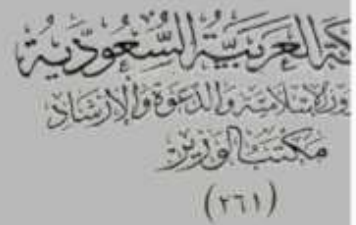 كة العربية السعودية
ون الإسلامية والدعوة والإرشاد
مكتب الوزير
(٢٦١)